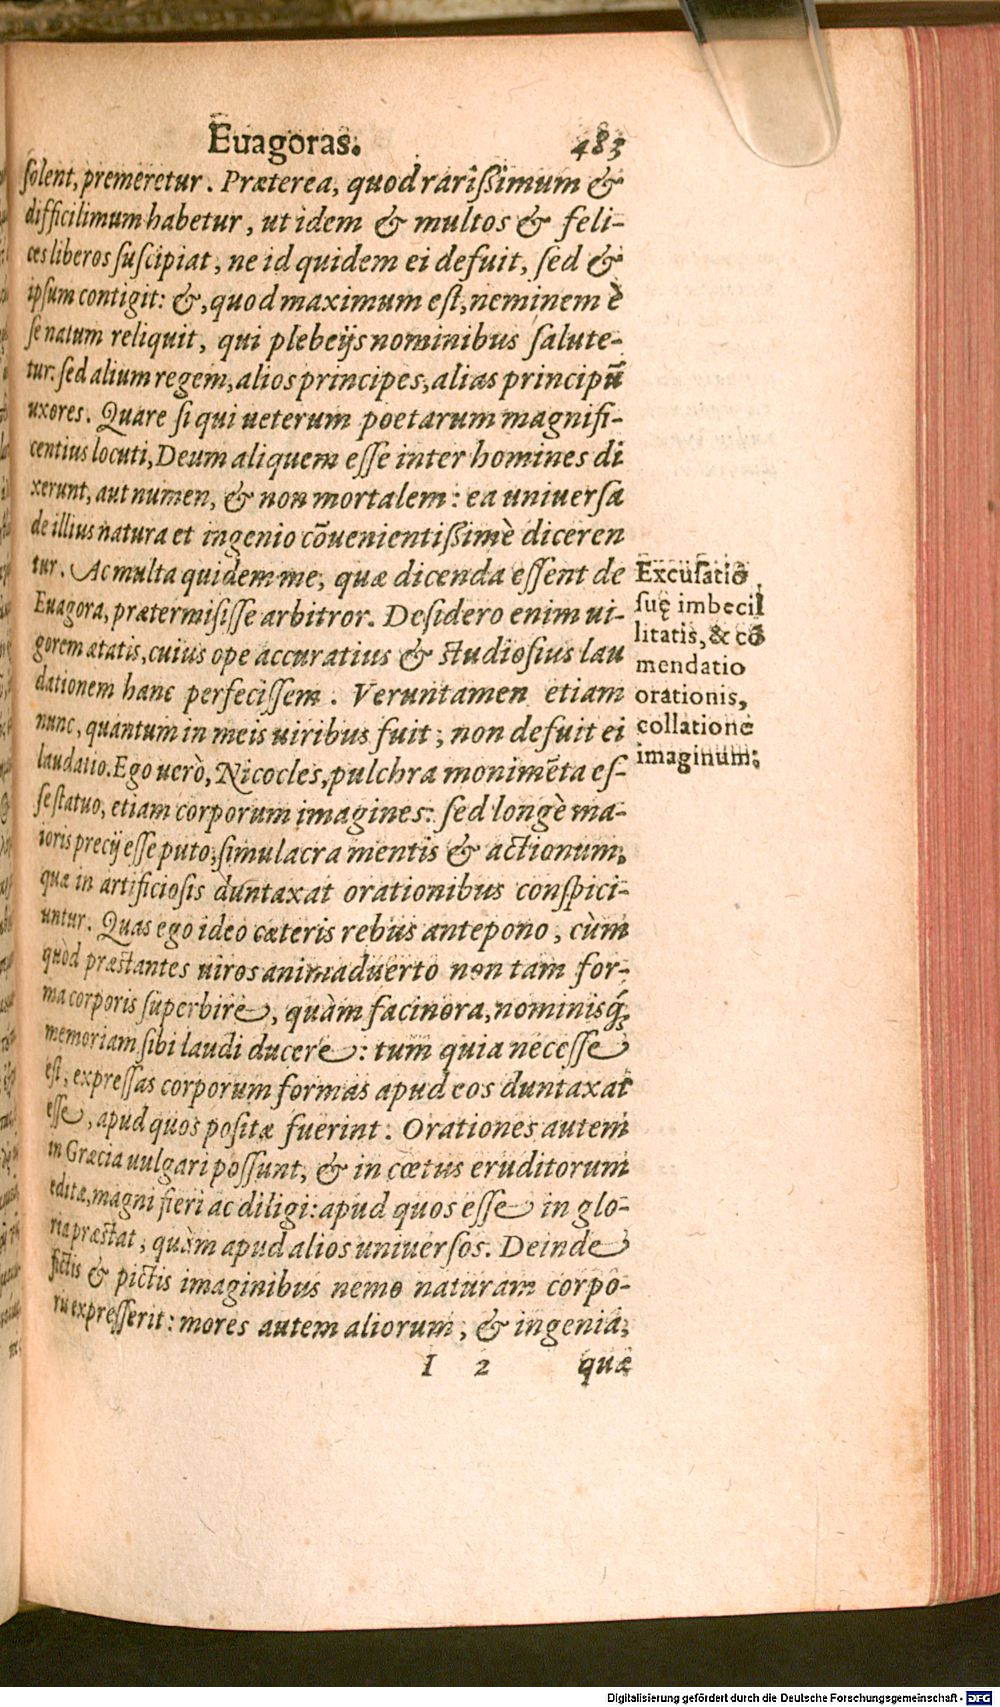 Euagoras. 483
ſolent, premeretur. Præterea, quod rariſſimum &
difficilimum habetur, ut idem & multos & feli-
ces liberos ſuſcipiat, ne id quidem ei defuit, ſed &
ipſum contigit: &, quod maximum eſt, neminem è
ſe natum reliquit, qui plebeijs nominibus ſalute-
tur: ſed alium regem, alios principes, alias principū
uxores. Quare ſi qui ueterum poetarum magnifi-
centius locuti, Deum aliquem eſſe inter homines di
xerunt, aut numen, & non mortalem: ea uniuerſa
de illius natura et ingenio cōuenientiſſimè diceren
tur. Ac multa quidem me, quæ dicenda eſſent de
Euagora, prætermiſiſſe arbitror. Deſidero enim ui-
gorem ætatis, cuius ope accuratius & ſtudioſius lau
dationem hanc perfeciſſem. Veruntamen etiam
nunc, quantum in meis uiribus fuit, non defuit ei
laudatio. Ego uerò, Nicocles, pulchra monimēta eſ-
ſe ſtatuo, etiam corporum imagines: ſed longè ma-
ioris precij eſſe puto, ſimulacra mentis & actionum,
quæ in artificioſis duntaxat orationibus conſpici-
untur. Quas ego ideo cæteris rebus antepono, cùm
quòd præſtantes uiros animaduerto non tam for-
ma corporis ſuperbire, quàm facinora, nominisq́;
memoriam ſibi laudi ducere: tum quia neceſſe
eſt, expreſſas corporum formas apud eos duntaxat
eſſe, apud quos poſitæ fuerint. Orationes autem
in Græcia uulgari poſſunt, & in cœtus eruditorum
editæ, magni fieri ac diligi: apud quos eſſe in glo-
ria præſtat, quàm apud alios uniuerſos. Deinde
fictis & pictis imaginibus nemo naturam corpo-
ris expreſſerit: mores autem aliorum, & ingenia,
I 2 quæ
Excuſatio
ſuę imbecil
litatis, & cō
mendatio
orationis,
collatione
imaginum.
Digitalisierung gefördert durch die Deutsche Forschungsgemeinschaft - DFG